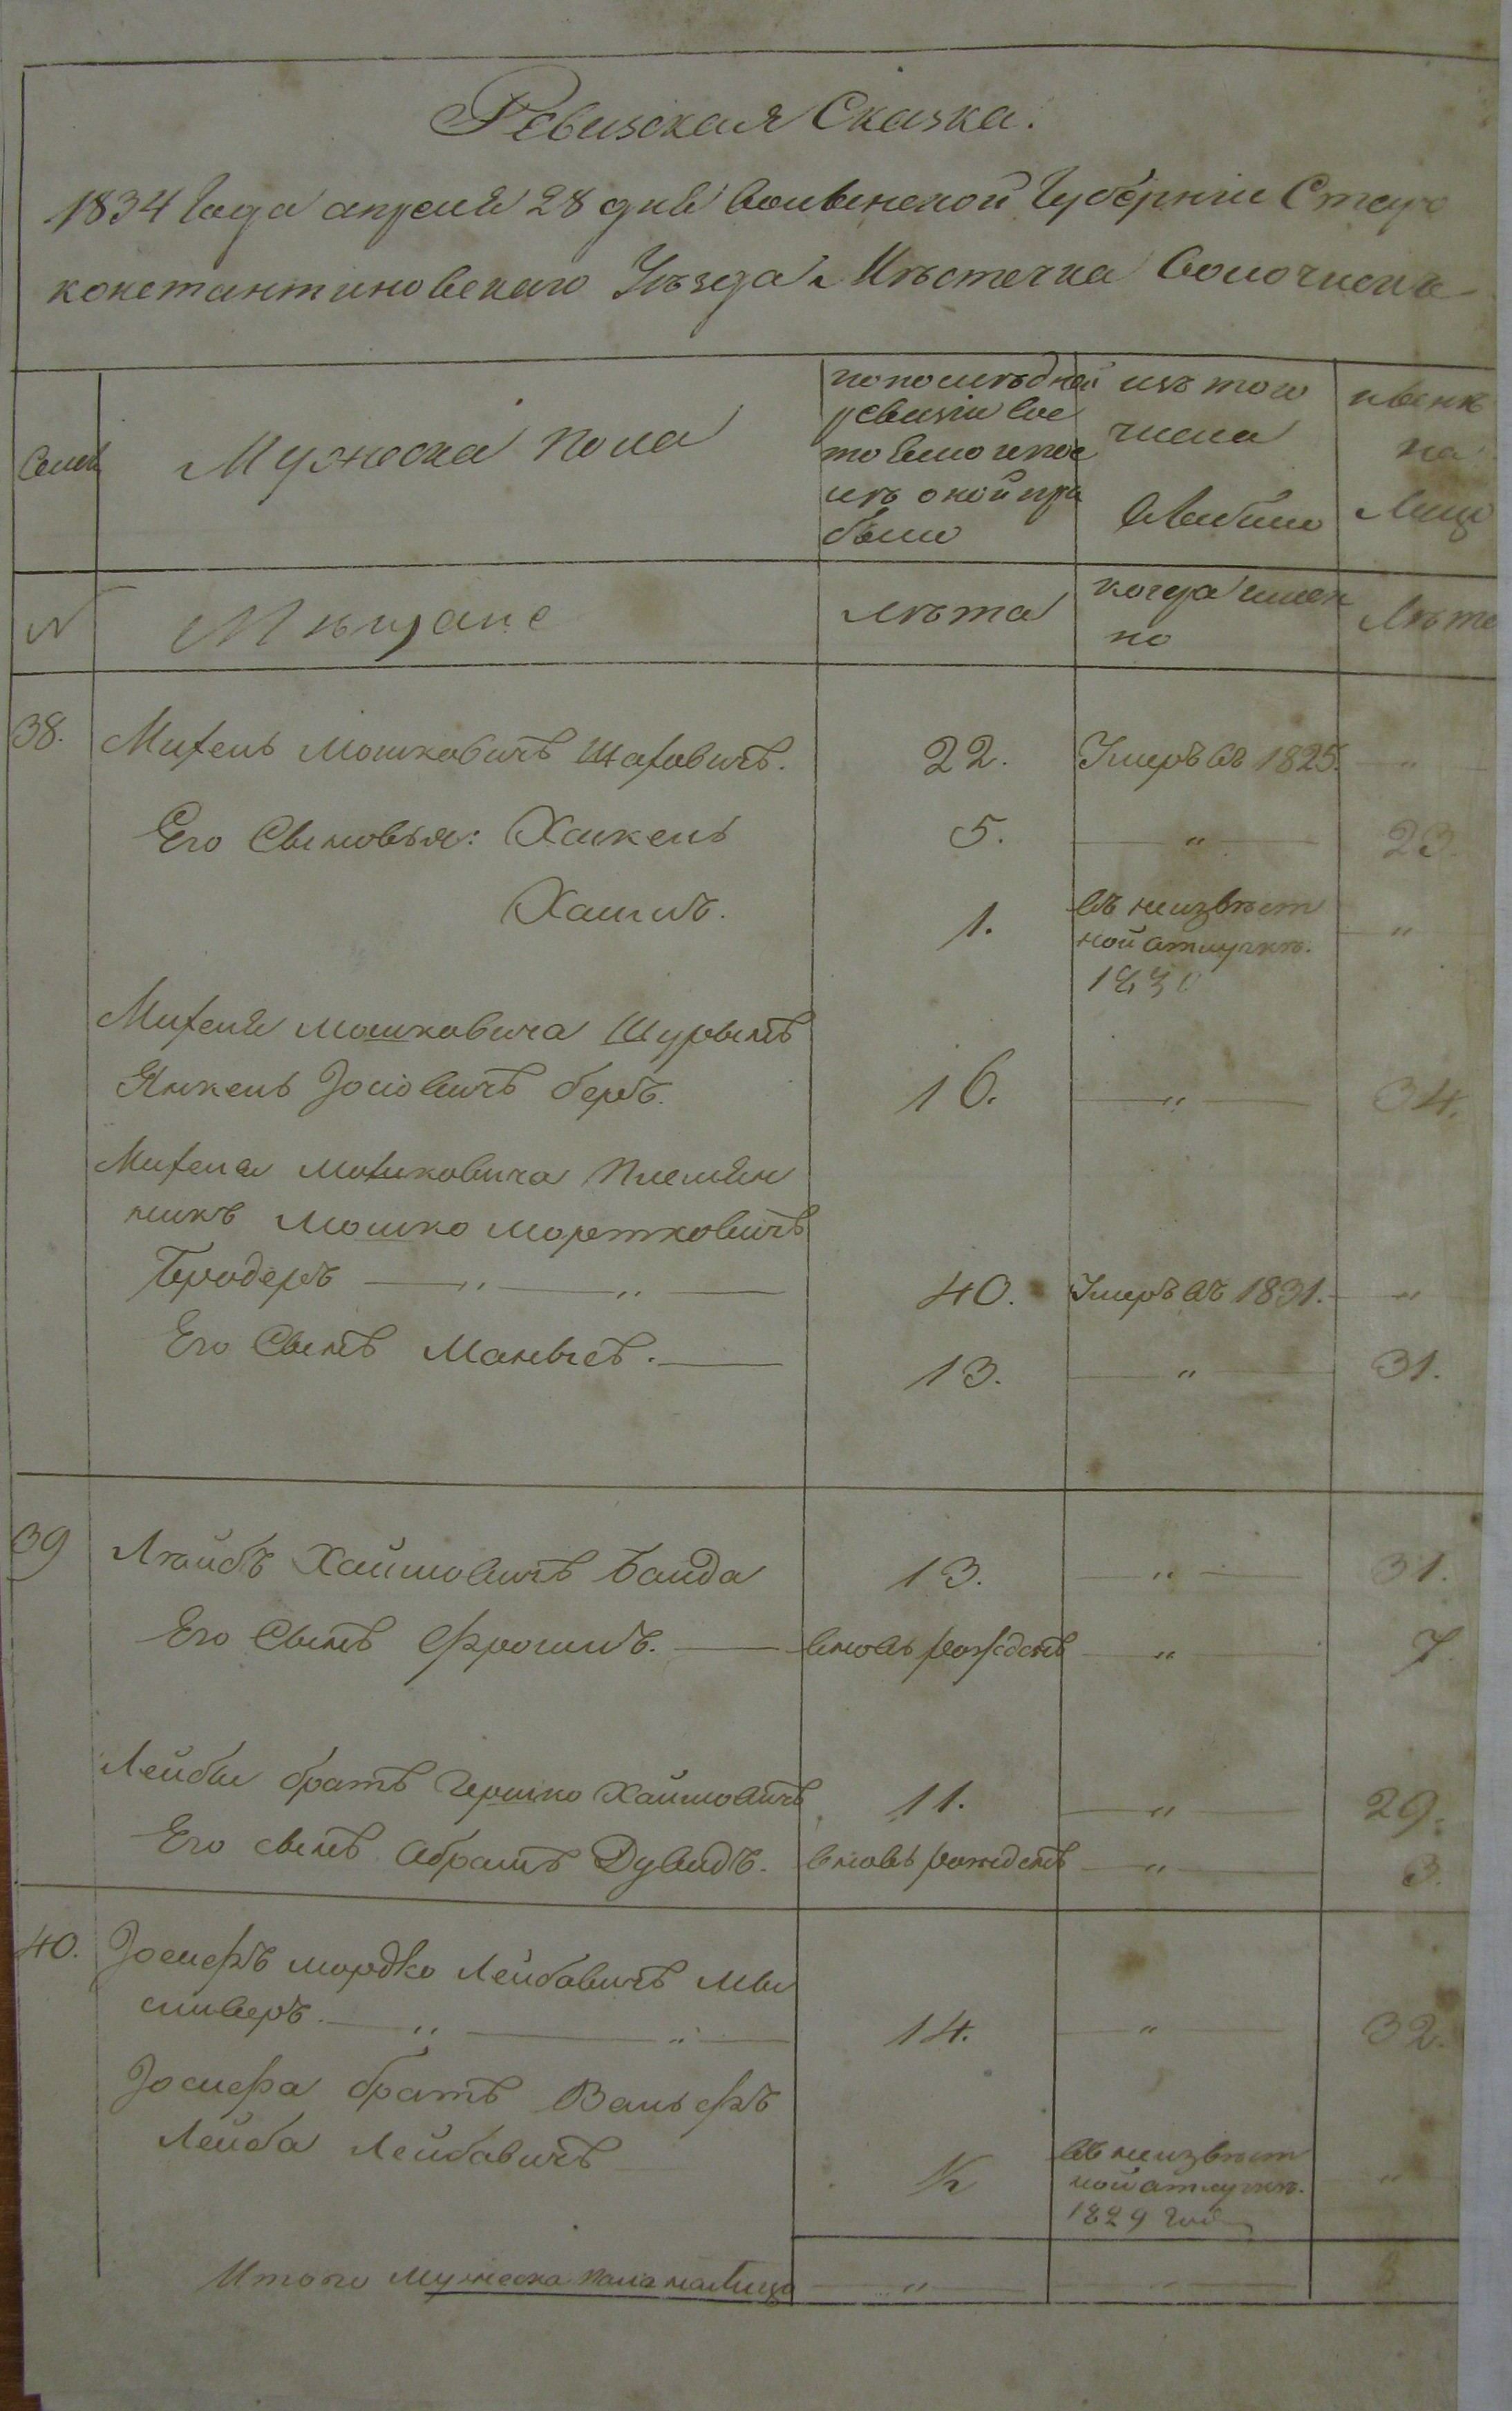 Ревизская Сказка.
1834 Года апреля 28 дня Волынской Губерніи Старо
константиновскаго Уѣзда Мѣстечка Волочиска
Семьи
Мужеска пола
по последней
ревизіи сос
тояло и пос
лѣ оной при
было
изъ того
числа
выбыло
нынѣ
на
Лицо
№
Мѣщане
лѣта
когда имен
но
Лѣта
38.
Михель Мошковичъ Шафовичъ.
22.
Умеръ въ 1825.
"
Его Сыновья: Хаскель
5.
"
23.
Хаимъ.
1.
въ неизвѣст
ной отлучкѣ.
1830
"
Михеля Мошковича Шурынъ
Янкель Іосіовичъ берб.
16.
"
34.
Михеля Мошковича племян
никъ Мошко Мортковичъ
Бродеръ " "
40.
Умеръ въ 1831.
"
Его Сынъ Манысъ.
13.
"
31.
39
Лейбъ Хаимовичъ Банда
13.
"
31.
Его Сынъ Фроимъ.
вновь рожденъ
"
7
Лейбы братъ Гершко Хаимовичъ
11.
"
29.
Его сынъ Абрамъ Дувидъ.
вновь рожденъ
"
3.
40.
Іосифъ Мордко Лейбовичъ Мы
сливеръ. " "
14.
"
32.
Іосифа братъ Вольфъ
Лейба Лейбовичъ
½
въ неизвѣст
ной отлучкѣ.
1829 год
"
Итого мужеска пола налицо
"
"